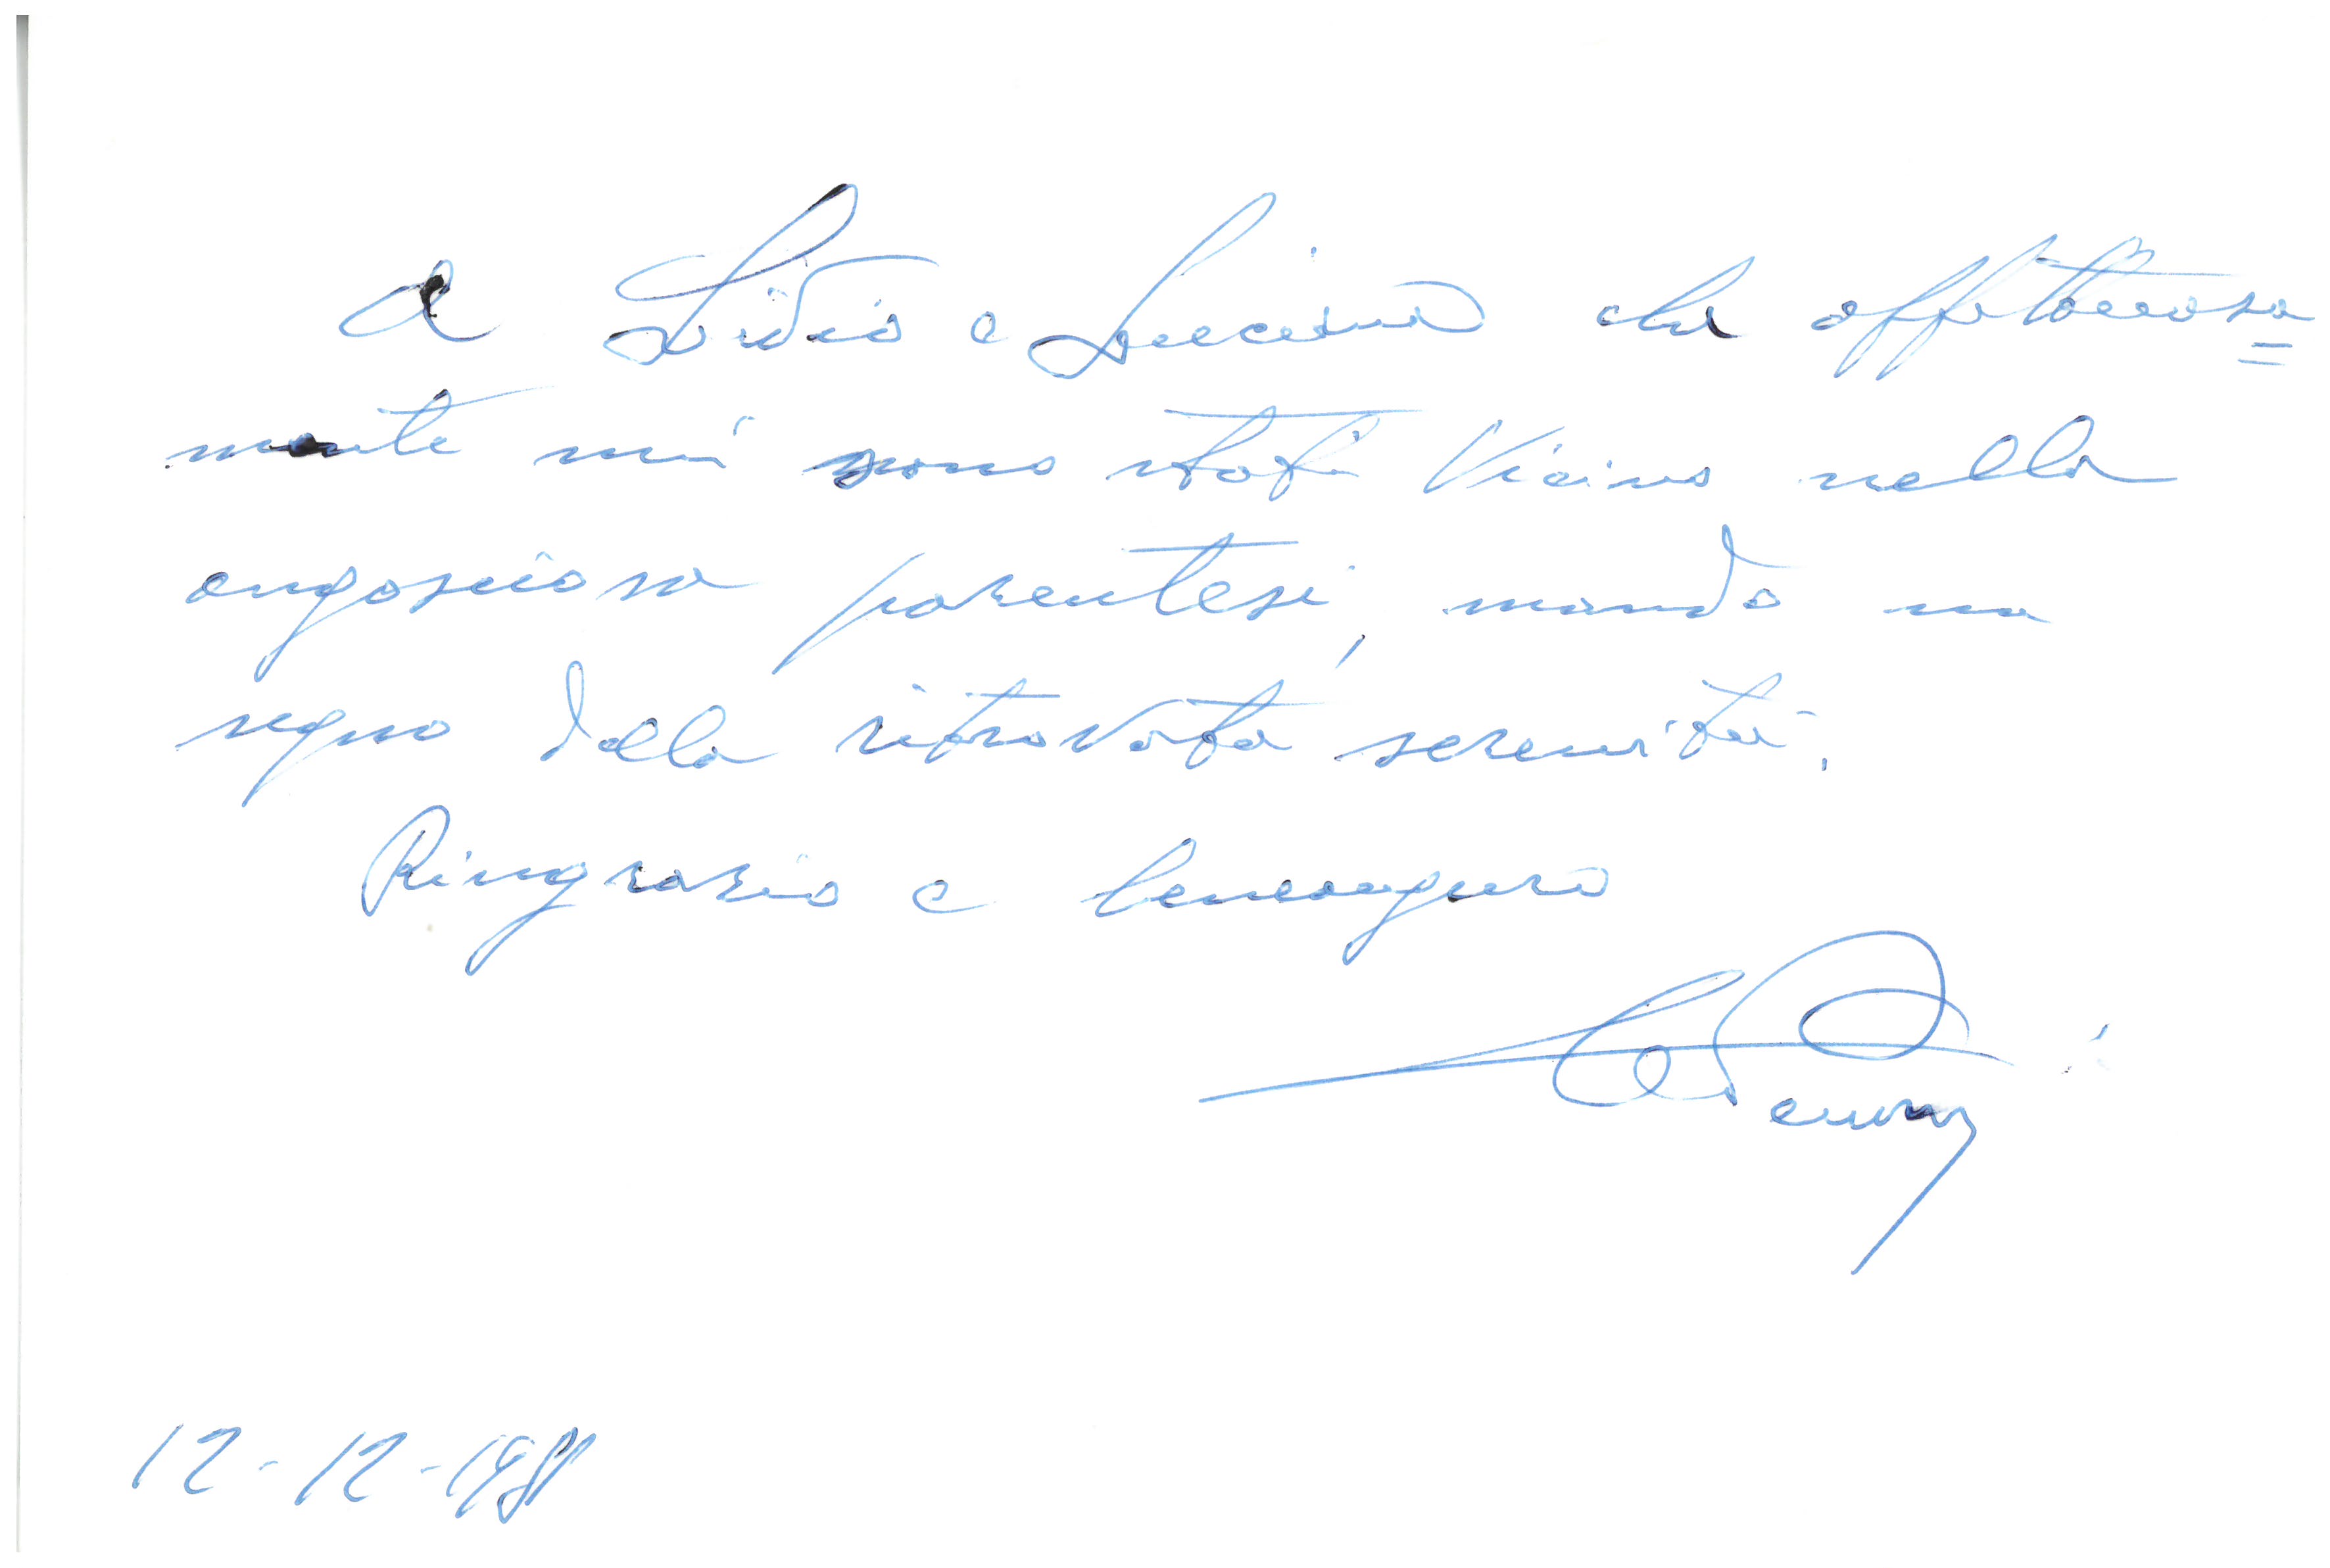 A Lidia e Luciano che affettuosa=
mente mi sono stati vicino nella
angosciosa parentesi, mando un
segno della ritrovata serenità.
Ringrazio e benauguro
12-12-1981